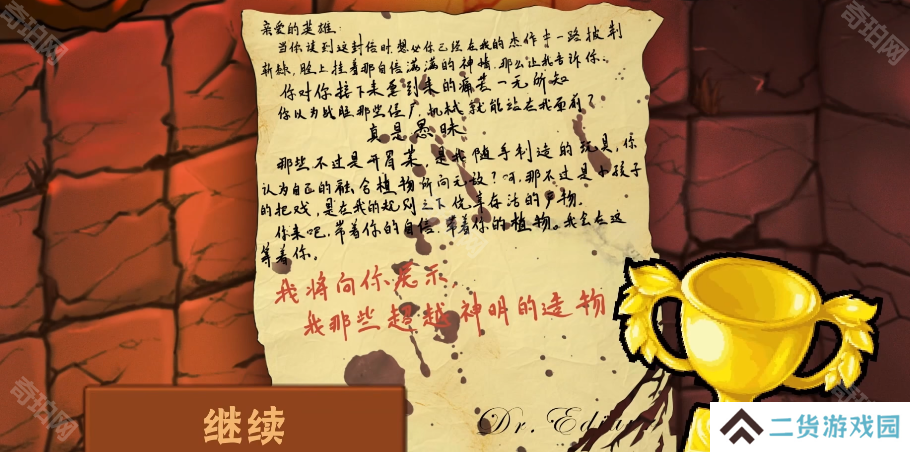 亲爱的英雄:
当你读到这封信时想必你已经在我的杰作中一路披荆
斩棘,脸上挂着那自信满满的神情,那么让我告诉你:
你对你接下来要到来的痛苦一无所知
你以为战胜那些僵尸机械就能站在我面前?
真是愚昧
那些不过是开胃菜,是我随手制造的玩具,你
认为自己的融合植物所向无敌?呵,那不过是小孩子
的把戏,是在我的规则之下侥幸存活的产物.
你来吧,带着你的自信,带着你的植物。我会在这
等着你。
我将向你展示,
我那些超越神明的造物
Dr.
继续
二货游戏园
奇珀网
奇珀网
奇珀网
奇珀网